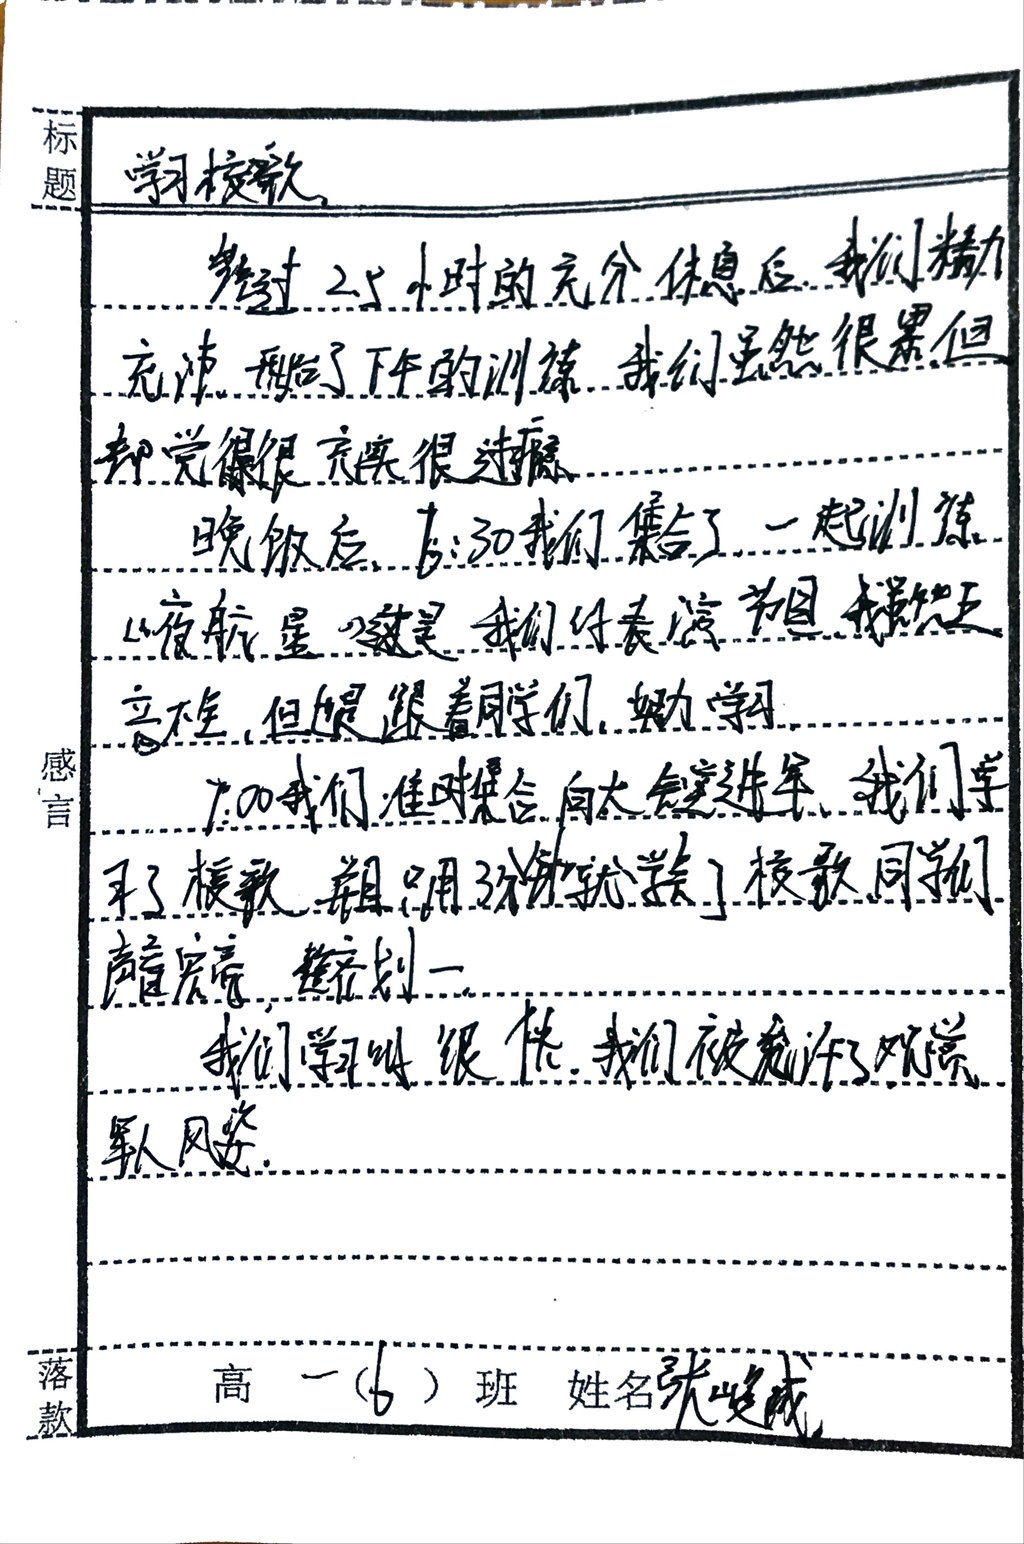 标题
学习校歌
经过2.5小时的充分休息后.我们精力
充沛.开始了下午的训练.我们虽然很累.但
却觉得很充实很过瘾.
晚饭后.6:30我们集合了.一起训练
"夜航星"这是我们的表演节目.我虽然五
音不全,但也是跟着同学们.努力学习.
7:00我们准时集合向大会堂进军.我们学
习了校歌.并且只用3分钟就学会了校歌.同学们
声音宏亮,整齐划一.
我们学习很快.我们被允许了观赏
军人风姿.
感言
落款
高一(6)班 姓名张峻成